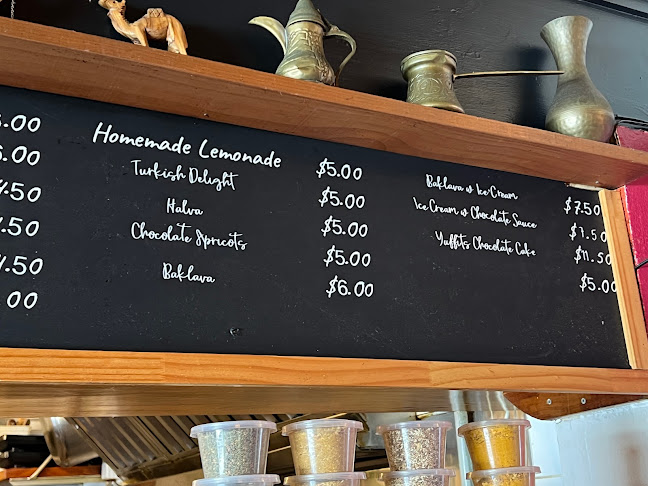 Homemade Lemonade $5.00
Turkish Delight $5.00
Halva $5.00
Chocolate Apricots $5.00
Baklava $6.00
Baklava w Ice Cream $7.50
Ice Cream w Chocolate Sauce
Yuffits Chocolate Cake $11.50
$5.00
.00
.00
.50
.50
.50
00